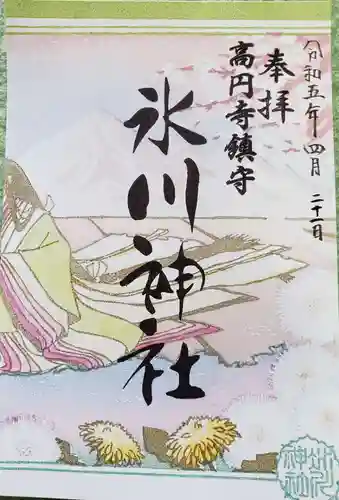 令和五年四月二十一日
奉拝
高円寺鎮守
氷川神社
氷川
神社